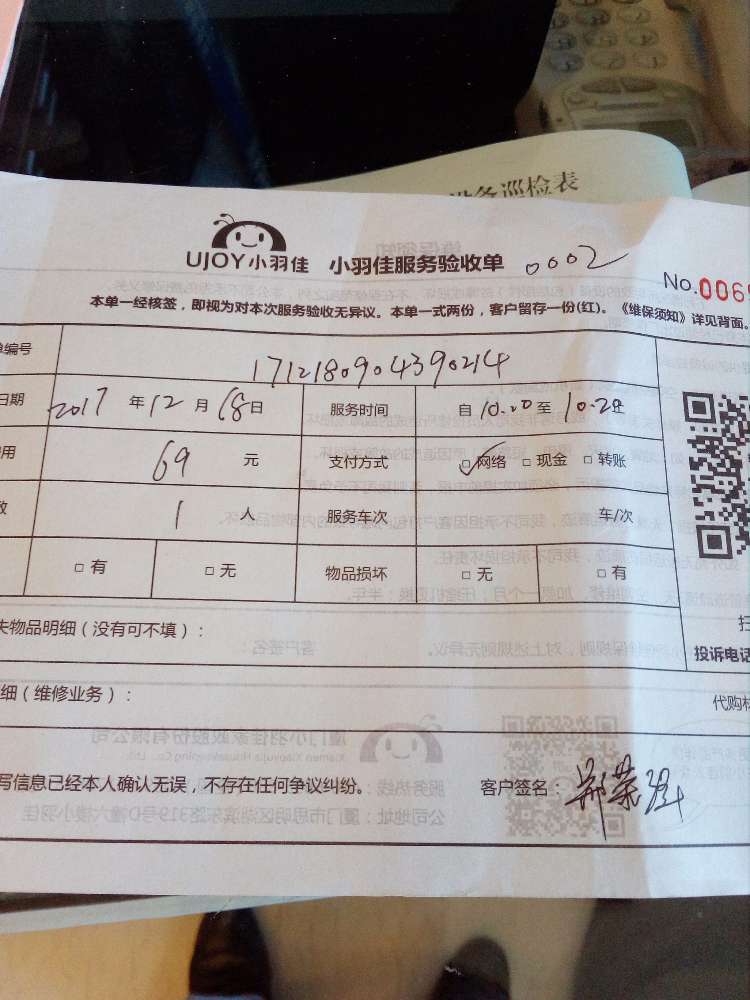 设备巡检表
UJOY小羽佳 小羽佳服务验收单 0002
No.006
本单一经核签，即视为对本次服务验收无异议。本单一式两份，客户留存一份(红)。《维保须知》详见背面。
单编号 1712180904390214
日期 2017 年 12 月 18 日 服务时间 自 10.00 至 10.20
用 69 元 支付方式 ☑网络 □现金 □转账
数 1 人 服务车次 车/次
□有 □无 物品损坏 □无 □有
失物品明细（没有可不填）：
投诉电话
细（维修业务）：
代购材
写信息已经本人确认无误，不存在任何争议纠纷。 客户签名：